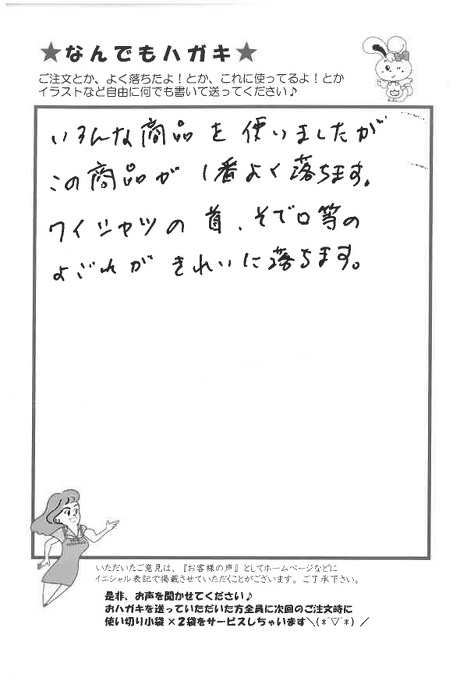 ★なんでもハガキ★
ご注文とか、よく落ちたよ！とか、これに使ってるよ！とか
イラストなど自由に何でも書いて送ってください♪
いろんな商品を使いましたが
この商品が1番よく落ちます。
ワイシャツの首、そで口等の
よごれがきれいに落ちます。
いただいたご意見は、『お客様の声』としてホームページなどに
イニシャル表記で掲載させていただくことがございます。ご了承下さい。
是非、お声を聞かせてください♪
おハガキを送っていただいた方全員に次回のご注文時に
使い切り小袋×2袋をサービスしちゃいます＼(*ˆ▽ˆ*)／